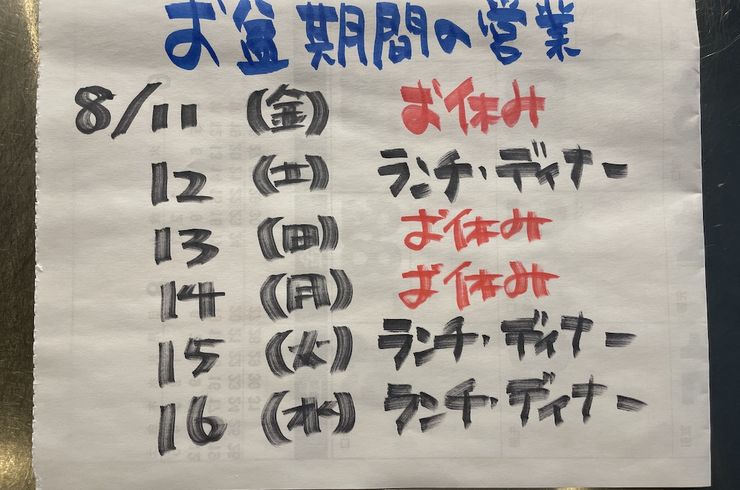 お盆期間の営業
8/11 (金) お休み
12 (土) ランチ・ディナー
13 (日) お休み
14 (月) お休み
15 (火) ランチ・ディナー
16 (水) ランチ・ディナー